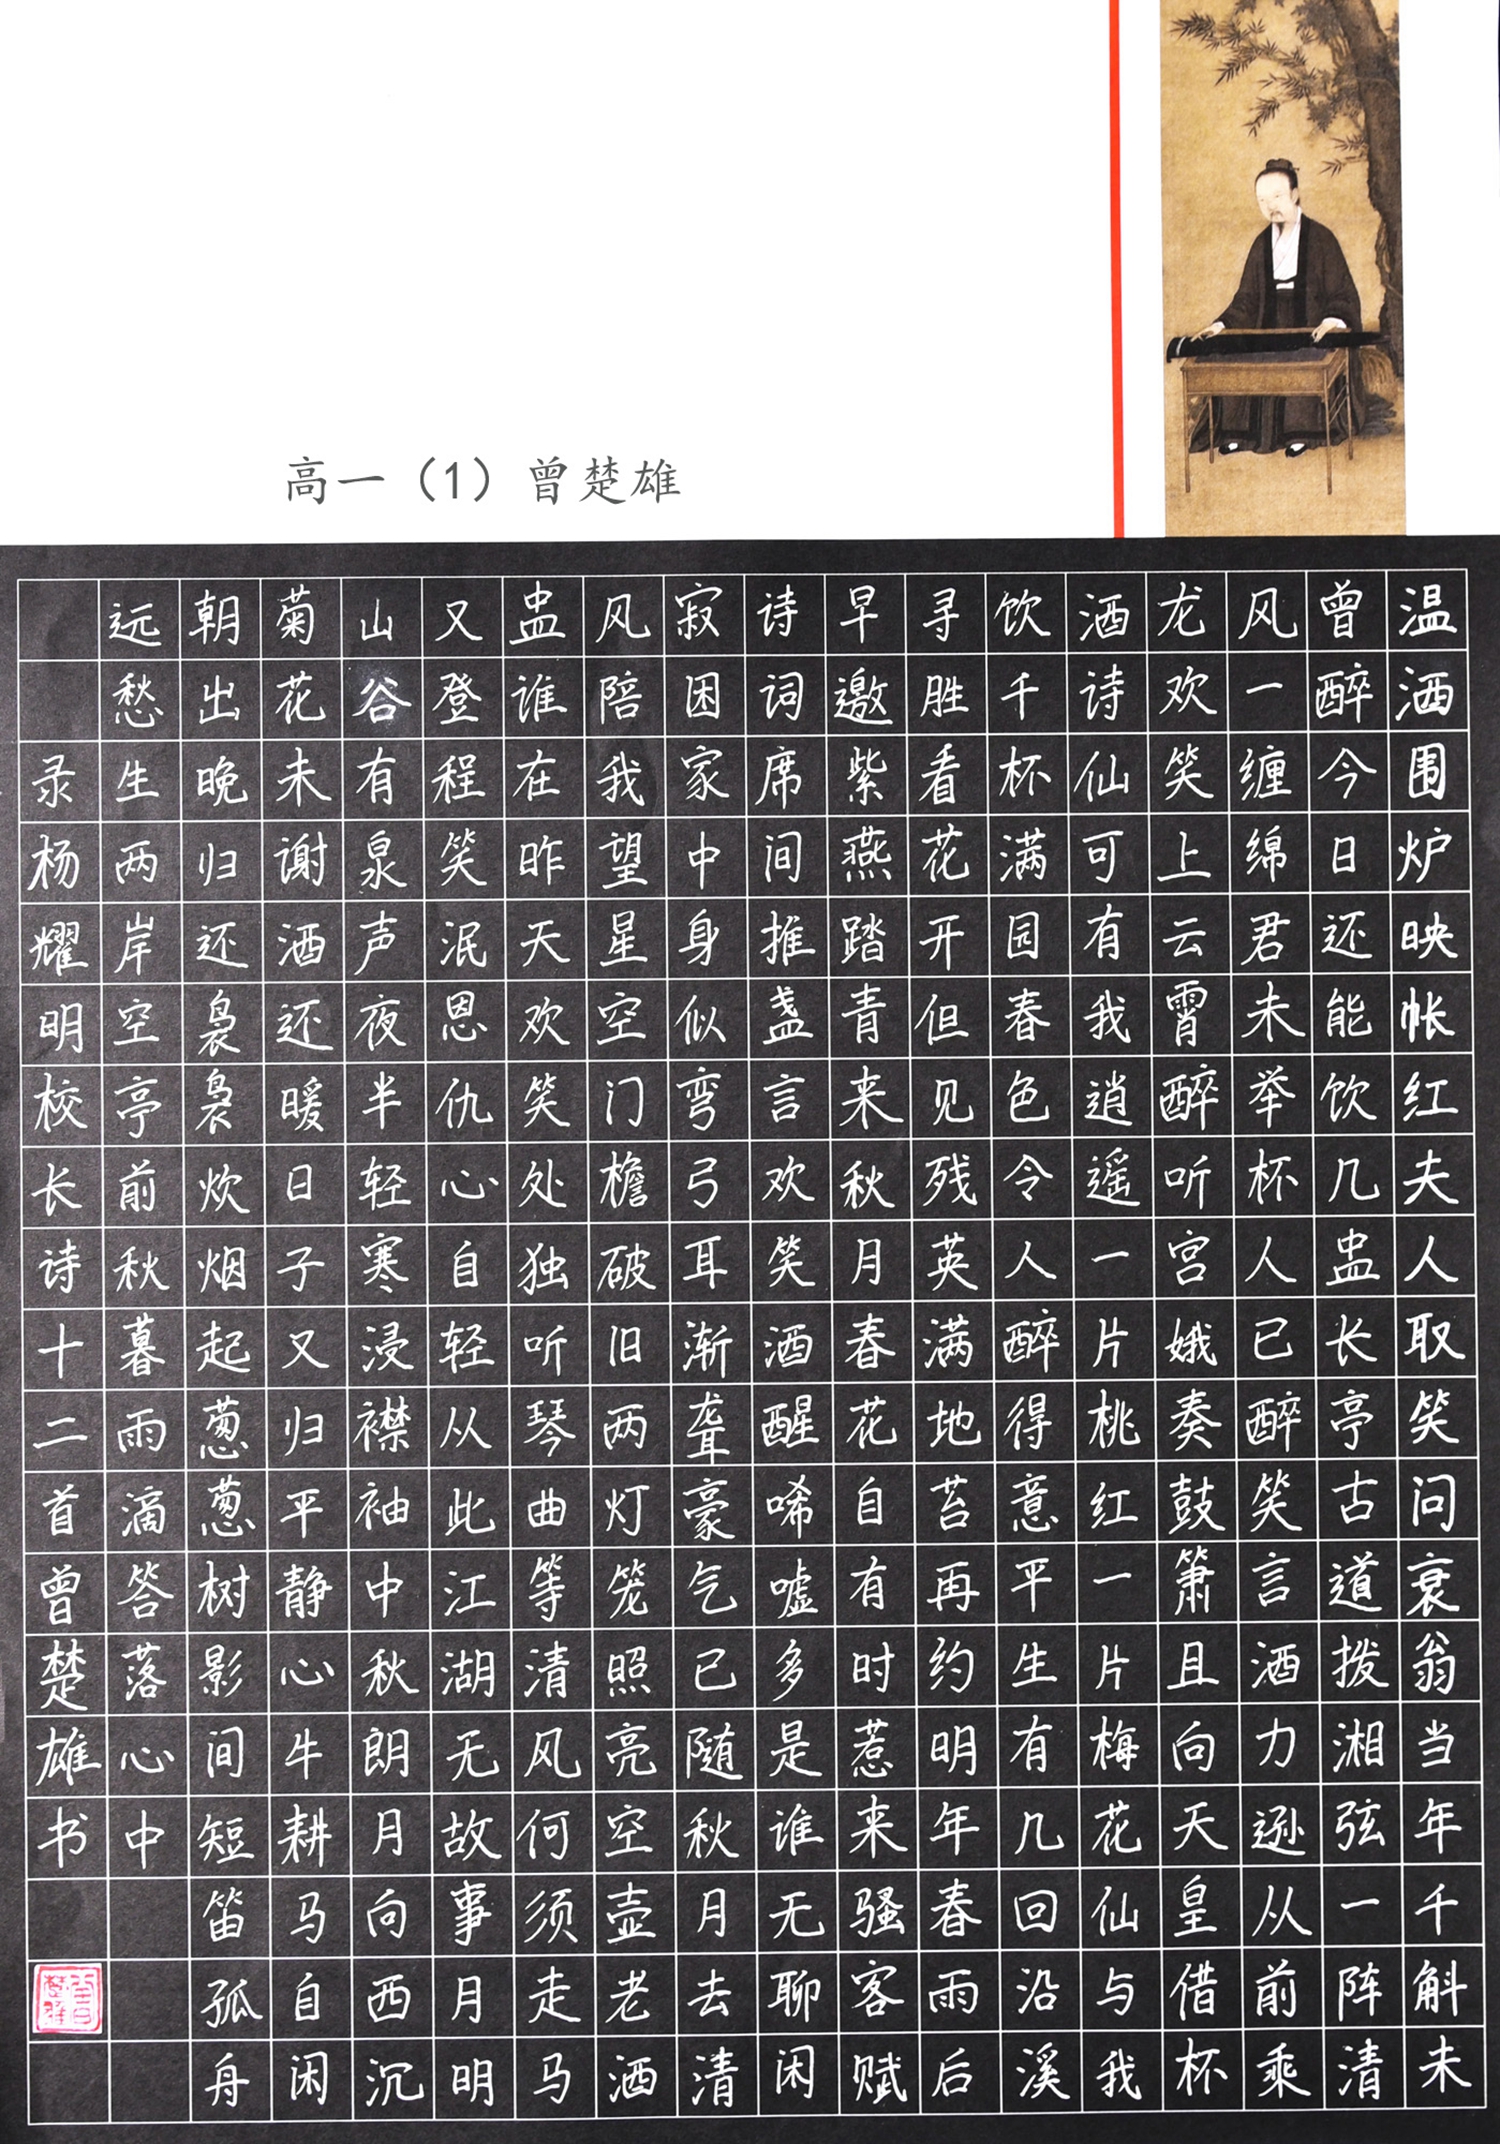 高一（1）曾楚雄
温酒围炉映帐红夫人取笑问衰翁当年千斛未
曾醉今日还能饮几盅长亭古道拨湘弦一阵清
风一缠绵君未举杯人已醉笑言酒力逊从前乘
龙欢笑上云霄醉听宫娥奏鼓箫且向天皇借杯
酒诗仙可有我逍遥一片桃红一片梅花仙与我
饮千杯满园春色令人醉得意平生有几回沿溪
寻胜看花开但见残英满地苔再约明年春雨后
早邀紫燕踏青来秋月春花自有时惹来骚客赋
诗词席间推盏言欢笑酒醒唏嘘多是谁无聊闲
寂困家中身似弯弓耳渐聋豪气已随秋月去清
风陪我望星空门檐破旧两灯笼照亮空壶老酒
盅谁在昨天欢笑处独听琴曲等清风何须走马
又登程笑泯恩仇心自轻从此江湖无故事月明
山谷有泉声夜半轻寒浸襟袖中秋朗月向西沉
菊花未谢酒还暖日子又归平静心牛耕马自闲
朝出晚归还袅袅炊烟起葱葱树影间短笛孤舟
远愁生两岸空亭前秋暮雨滴答落心中
录杨耀明校长诗十二首曾楚雄书